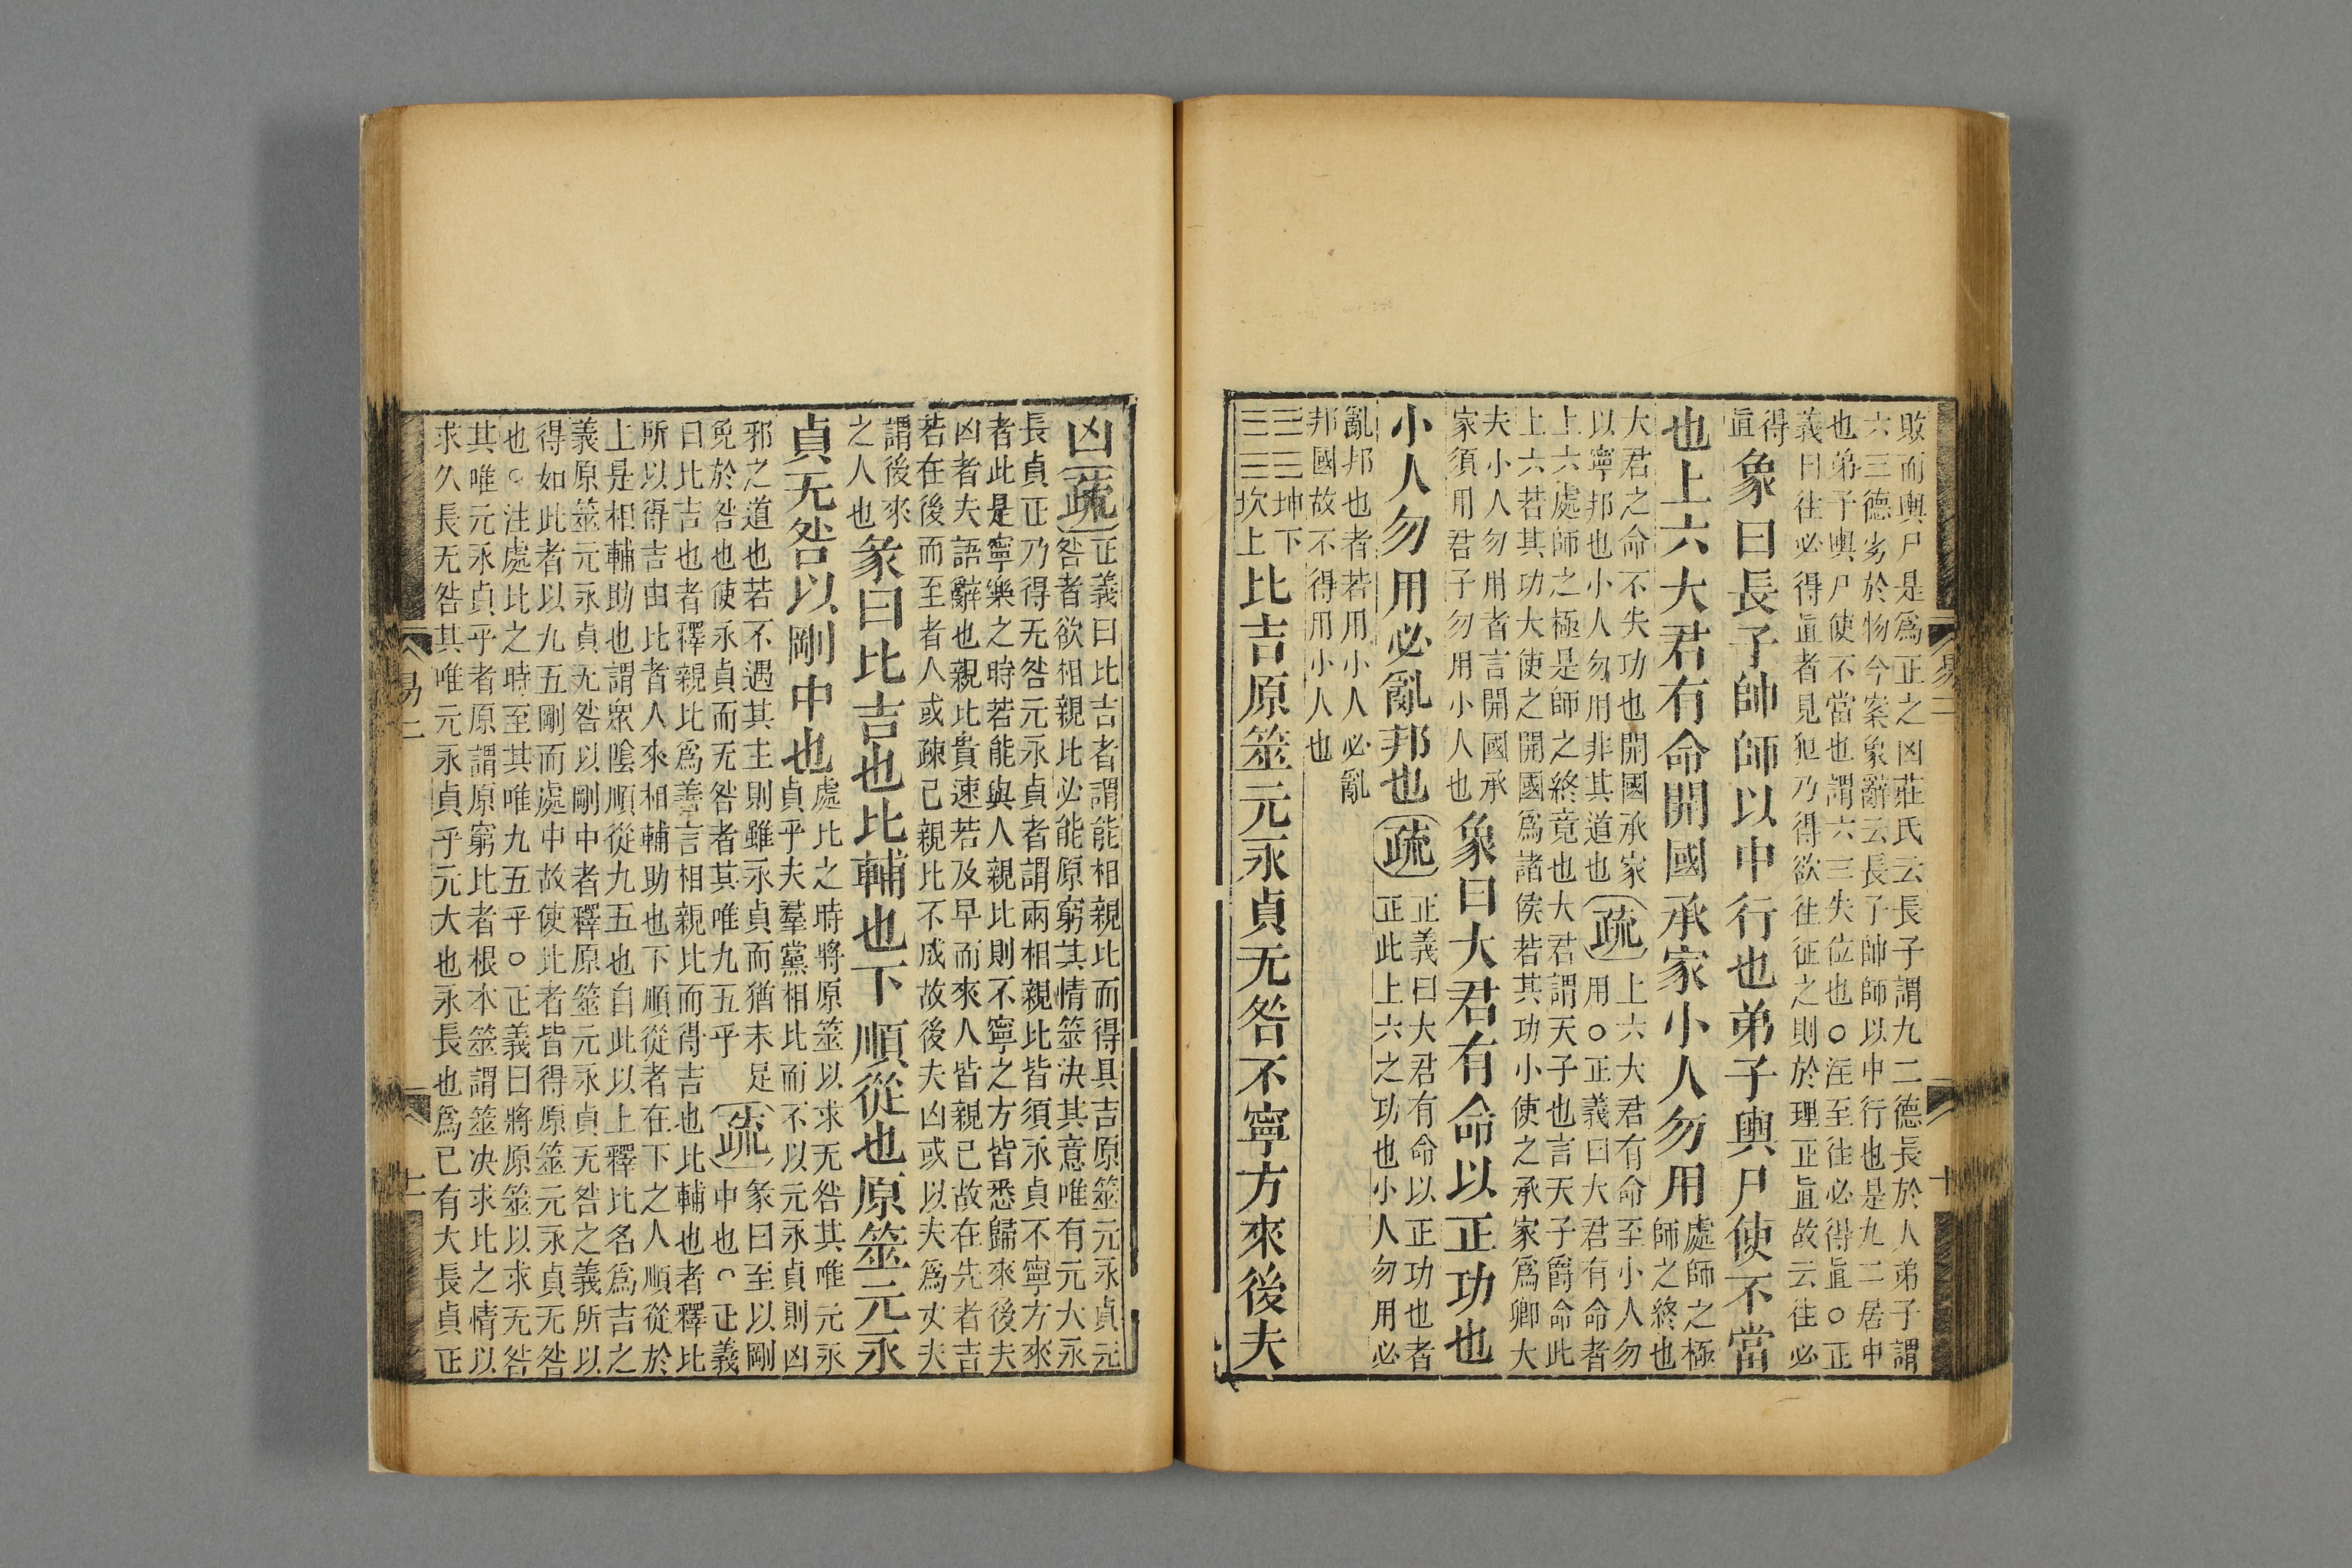 敗而輿尸是爲正之凶莊氏云長子謂九二德長於人弟子謂
六三德劣於物今案象辭云長子帥師以中行也是九二居中
也弟子輿尸使不當也謂六三失位也○注至往必得直○正
義曰往必得直者見犯乃得欲往征之則於理正直故云往必
得
直
象曰長子帥師以中行也弟子輿尸使不當
也上六大君有命開國承家小人勿用
處師之極
師之終也
大君之命不失功也開國承家
以寧邦也小人勿用非其道也
疏
上六大君有命至小人勿
用○正義曰大君有命者
上六處師之極是師之終竟也大君謂天子也言天子爵命此
上六若其功大使之開國爲諸侯若其功小使之承家爲卿大
夫小人勿用者言開國承
家須用君子勿用小人也
象曰大君有命以正功也
小人勿用必亂邦也
疏
正義曰大君有命以正功也者
正此上六之功也小人勿用必
亂邦也者若用小人必亂
邦國故不得用小人也
䷇
坤下
坎上
比吉原筮元永貞无咎不寧方來後夫
易二
十
凶
疏
正義曰比吉者謂能相親比而得具吉原筮元永貞元
咎者欲相親比必能原窮其情筮決其意唯有元大永
長貞正乃得无咎元永貞者謂兩相親比皆須永貞不寧方來
者此是寧樂之時若能與人親比則不寧之方皆悉歸來後夫
凶者夫語辭也親比貴速若及早而來人皆親已故在先者吉
若在後而至者人或疎己親比不成故後夫凶或以夫爲丈夫
謂後來
之人也
彖曰比吉也比輔也下順從也原筮元永
貞无咎以剛中也
處比之時將原筮以求无咎其唯元永
貞乎夫羣黨相比而不以元永貞則凶
邪之道也若不遇其主則雖永貞而猶未足
免於咎也使永貞而无咎者其唯九五乎
疏
彖曰至以剛
中也○正義
曰比吉也者釋親比爲善言相親比而得吉也比輔也者釋比
所以得吉由比者人來相輔助也下順從者在下之人順從於
上是相輔助也謂衆陰順從九五也自此以上釋比名爲吉之
義原筮元永貞无咎以剛中者釋原筮元永貞无咎之義所以
得如此者以九五剛而處中故使比者皆得原筮元永貞无咎
也○注處比之時至其唯九五乎○正義曰將原筮以求无咎
其唯元永貞乎者原謂原窮比者根本筮謂筮決求比之情以
求久長无咎其唯元永貞乎元大也永長也爲已有大長貞正
易二